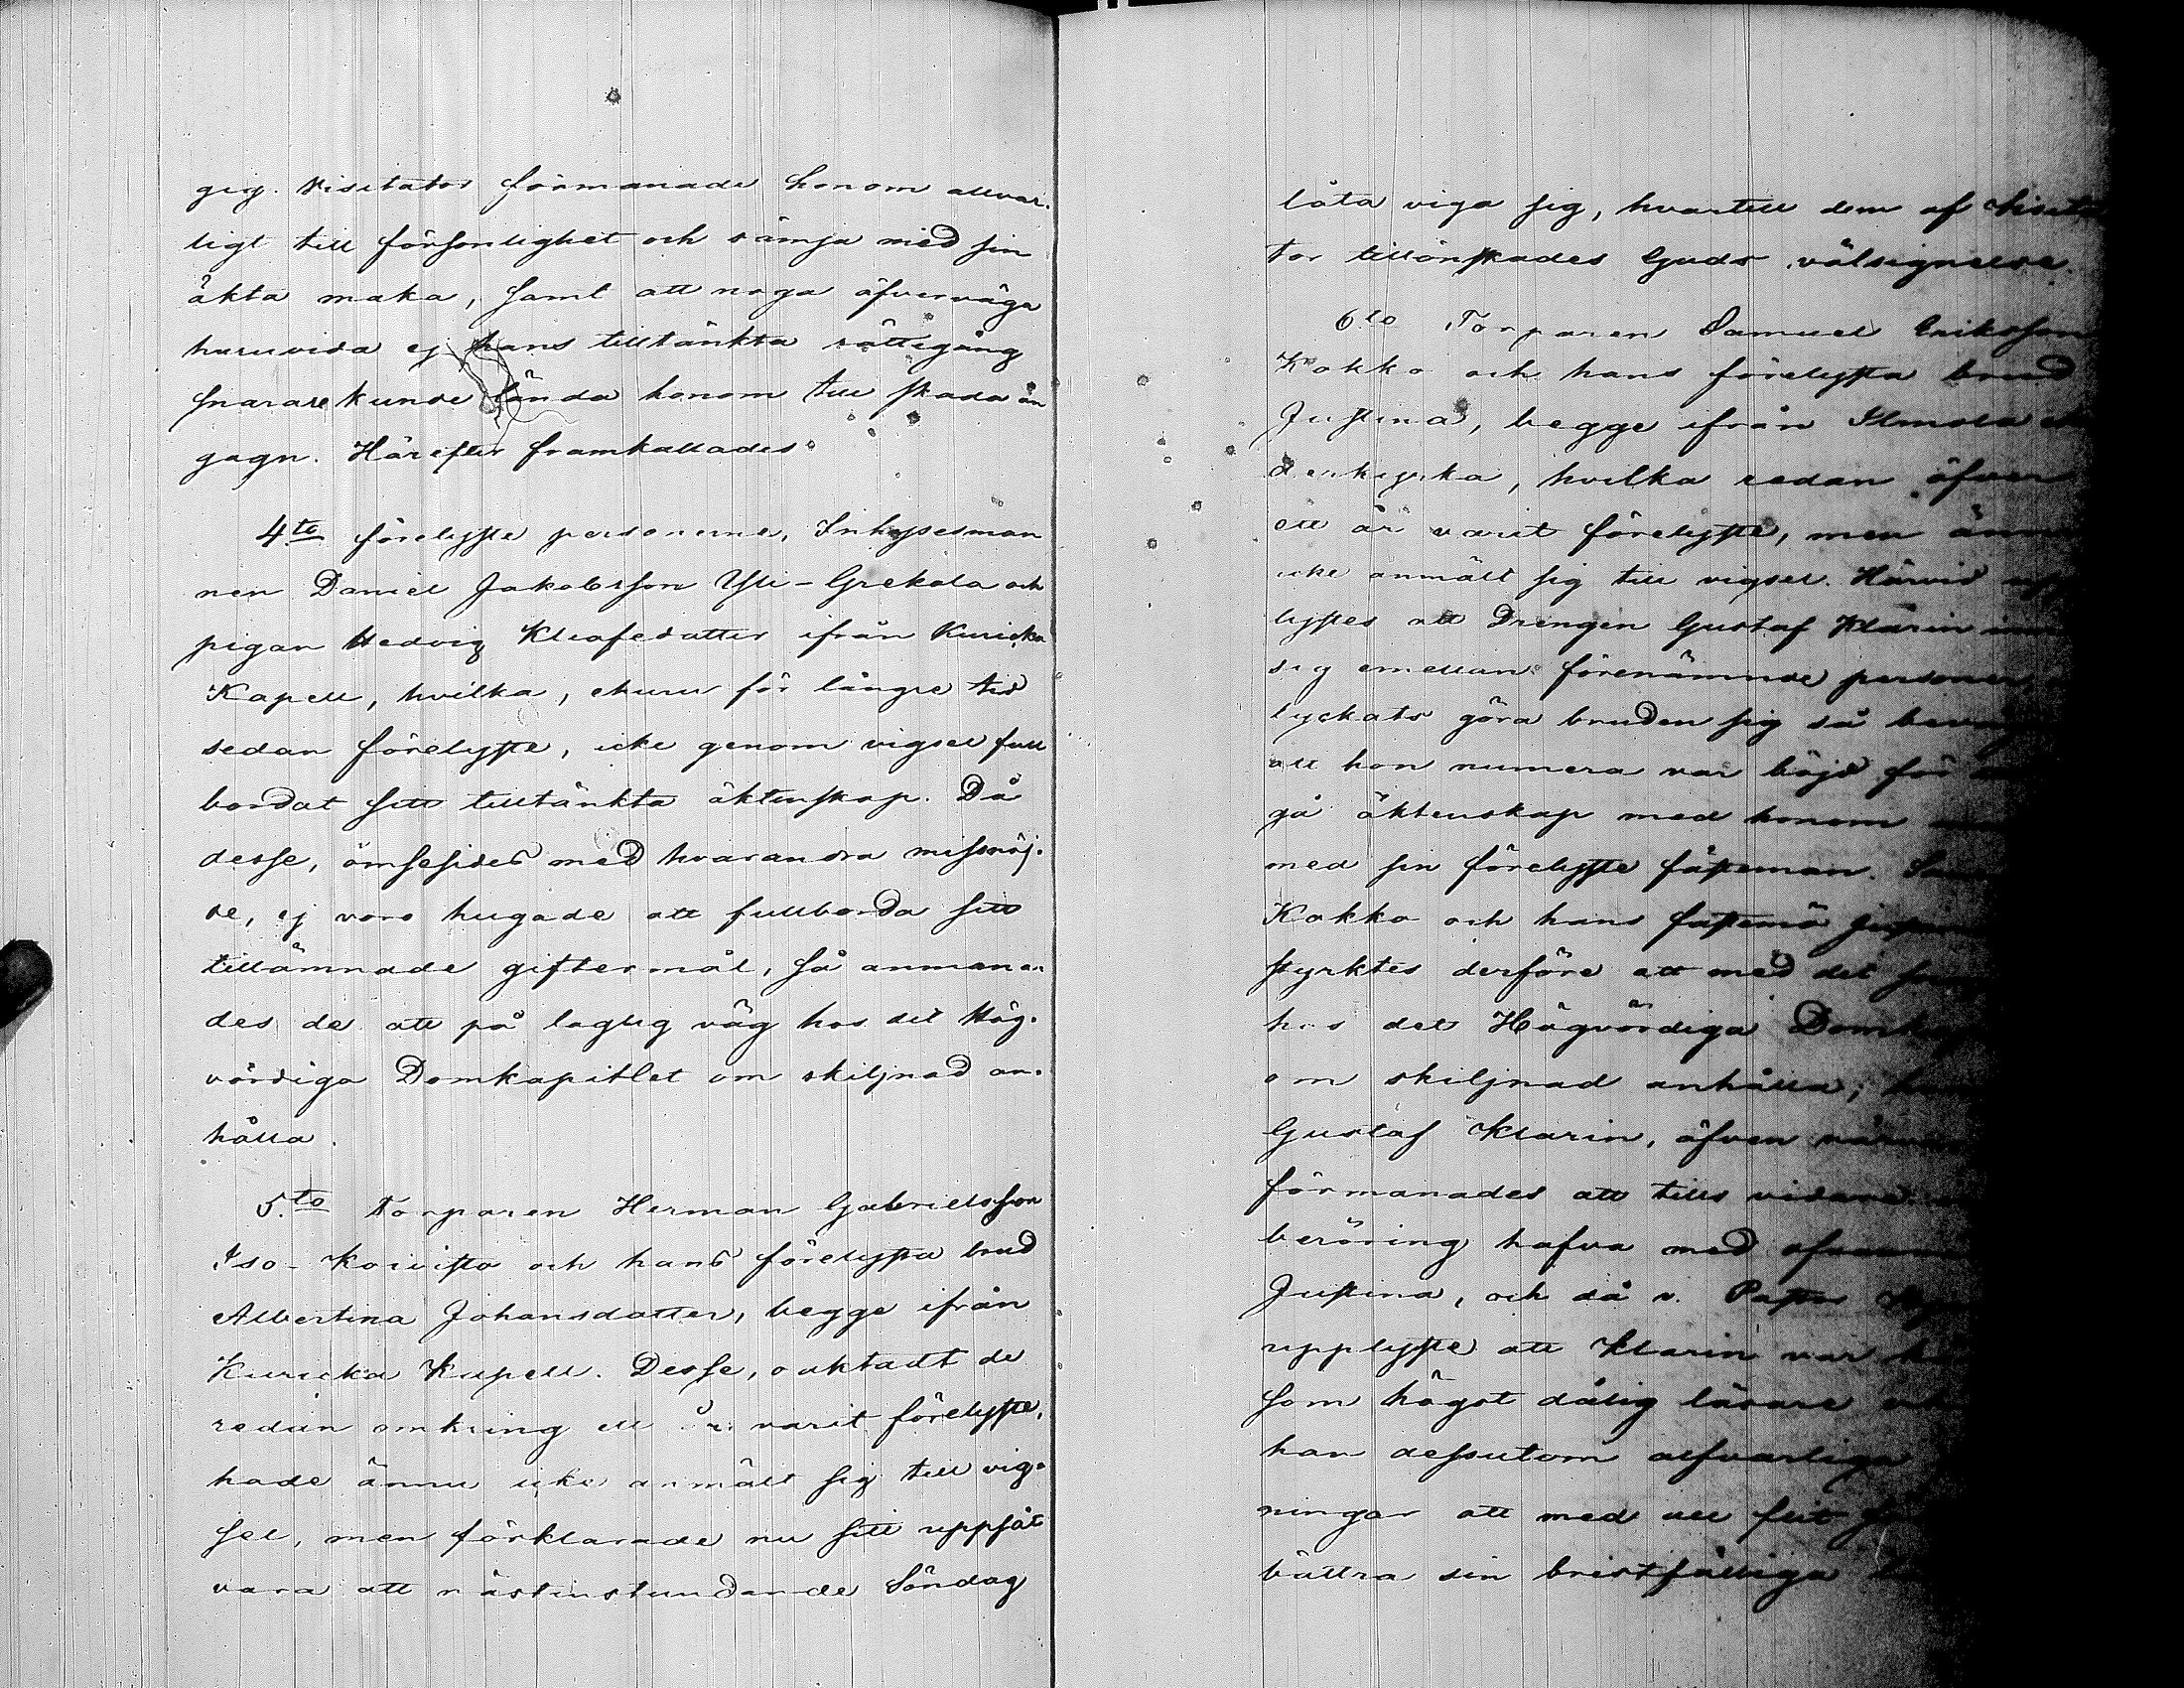 gig. Visitator förmanade honom allvar-
ligt till försonlighet och sämja med sin
äkta maka, samt att noga öfverväga
huruvida ej hans tilltänkta rättegång
snarare kunde lända honom till skada än
gagn. Härefter framkallades
4to förelyste personerne, Inhysesman
nen Daniel Jakobsson Yli-Grekola och
pigan Hedvig Kleofedatter ifrån Kuricka
Kapell, hvilka, ehuru för längre tid
sedan förelyste, icke genom vigsel full
bordat sitt tilltänkta äktenskap. Då
desse, ömsesides med hvarandra missnöj-
de, ej voro hugade att fullborda sitt
tillämnade giftermål, så anmana-
des de att på laglig väg hos det Hög-
vördiga Domkapitlet om skiljnad an-
hålla.
5.to Torparen Herman Gabrielsson
Iso-Koivisto och hans förelysta brud
Albertina Johansdatter, begge ifrån
Kuricka Kapell. Desse, oaktadt de
redan omkring ett år varit förelyste,
hade ännu icke anmält sig till vig-
sel, men förklarade nu sitt uppsåt
vara att nästinstundande Söndag
låta viga sig, hvartill dem af Visita
tor tillönskades Guds välsignelse.
6to Torparen Samuel Eriksson
Kokko och hans förelysta brud
Justina, begge ifrån Ilmola
derkyrka, hvilka redan öfver
ett år varit förelyste, men
icke anmält sig till vigsel. Härvid upp
lystes att Drengen Gustaf Klarin
sig emellan förenämnde personer,
lyckats göra bruden sig så
att hon numera var böjd för
gå äktenskap med honom
med sin förelyste fästeman.
Kokko och hans fästemö
styrktes derföre att med det
hos det Högvördiga Domkap
om skiljnad anhålla;
Gustaf Klarin, äfven
förmanades att tills vidare
beröring hafva med
Justina, och då v. Pastor
upplyste att Klarin var
som högst dålig läsare
han dessutom alfvarliga
ningar att med all flit
bättra sin bristfälliga